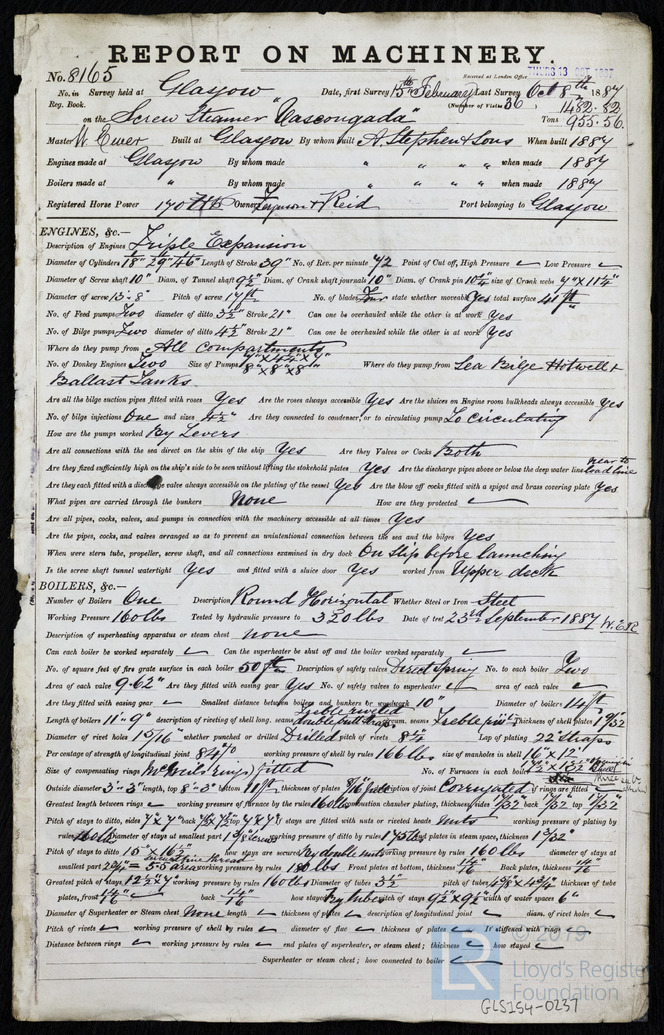 REPORT ON MACHINERY.
No. 8165 Received at London Office THURS 13 OCT 1887
No. in Survey held at Glasgow Date, first Survey 15th February Last Survey Oct 8th 1887
Reg. Book. (Number of Visits 36) 1482.82
on the Screw Steamer "Vascongada" Tons 955.56
Master W Ewer Built at Glasgow By whom built A. Stephen & Sons When built 1887
Engines made at Glasgow By whom made " " " " when made 1887
Boilers made at " By whom made " " " " when made 1887
Registered Horse Power 170 Owners Ferguson & Reid Port belonging to Glasgow
ENGINES, &c.—
Description of Engines Triple Expansion
Diameter of Cylinders 18" 29" 46" Length of Stroke 39" No. of Rev. per minute 72 Point of Cut off, High Pressure Low Pressure
Diameter of Screw shaft 10" Diam. of Tunnel shaft 9½" Diam. of Crank shaft journals 10" Diam. of Crank pin 10¼" size of Crank webs 7" x 11¼"
Diameter of screw 13.8" Pitch of screw 17ft No. of blades Four state whether moveable Yes total surface 41 ft
No. of Feed pumps Two diameter of ditto 3½" Stroke 21" Can one be overhauled while the other is at work Yes
No. of Bilge pumps Two diameter of ditto 4½" Stroke 21" Can one be overhauled while the other is at work Yes
Where do they pump from All compartments
No. of Donkey Engines Two Size of Pumps 8" x 8" x 8" Where do they pump from Sea Bilge Hotwell &
Ballast Tanks
Are all the bilge suction pipes fitted with roses Yes Are the roses always accessible Yes Are the sluices on Engine room bulkheads always accessible Yes
No. of bilge injections One and sizes 4½" Are they connected to condenser, or to circulating pump To circulating
How are the pumps worked By Levers
Are all connections with the sea direct on the skin of the ship Yes Are they Valves or Cocks Both
Are they fixed sufficiently high on the ship's side to be seen without lifting the stokehold plates Yes Are the discharge pipes above or below the deep water line near to load line
Are they each fitted with a discharge valve always accessible on the plating of the vessel Yes Are the blow off cocks fitted with a spigot and brass covering plate Yes
What pipes are carried through the bunkers None How are they protected
Are all pipes, cocks, valves, and pumps in connection with the machinery accessible at all times Yes
Are the pipes, cocks, and valves arranged so as to prevent an unintentional connection between the sea and the bilges Yes
When were stern tube, propeller, screw shaft, and all connections examined in dry dock On slip before launching
Is the screw shaft tunnel watertight Yes and fitted with a sluice door Yes worked from Upper deck
BOILERS, &c.—
Number of Boilers One Description Round Horizontal Whether Steel or Iron Steel
Working Pressure 160 lbs Tested by hydraulic pressure to 320 lbs Date of test 23rd September 1887
Description of superheating apparatus or steam chest none
Can each boiler be worked separately Can the superheater be shut off and the boiler worked separately
No. of square feet of fire grate surface in each boiler 50 ft Description of safety valves Direct Spring No. to each boiler Two
Area of each valve 9.62" Are they fitted with easing gear Yes No. of safety valves to superheater area of each valve
Are they fitted with easing gear Smallest distance between boilers and bunkers or woodwork 10" Diameter of boilers 14 ft
Length of boilers 11'-9" description of riveting of shell long. seams Treble riveted double butt straps circum. seams Treble riv Thickness of shell plates 1 9/32
Diameter of rivet holes 1 5/16" whether punched or drilled Drilled pitch of rivets 8½ Lap of plating 22" straps
Per centage of strength of longitudinal joint 84% working pressure of shell by rules 166 lbs size of manholes in shell 16" x 12"
Size of compensating rings McNeil's rings fitted No. of Furnaces in each boiler
Outside diameter 3'-3" length, top 8'-3" bottom 11 ft thickness of plates 9/16 description of joint Corrugated if rings are fitted
Greatest length between rings working pressure of furnace by the rules 160 lbs combustion chamber plating, thickness, sides 17/32 back 17/32 top 17/32
Pitch of stays to ditto, sides 7 x 7 back 7½ x 7½ top 7 x 7½ If stays are fitted with nuts or riveted heads nuts working pressure of plating by
rules 160 lbs Diameter of stays at smallest part working pressure of ditto by rules 175 lbs end plates in steam space, thickness
Pitch of stays to ditto 15" x 16½ how stays are secured By double nuts working pressure by rules 160 lbs diameter of stays at
smallest part working pressure by rules 180 lbs Front plates at bottom, thickness 14/16 Back plates, thickness 14/16
Greatest pitch of stays 12½ x 7" working pressure by rules 160 lbs Diameter of tubes 3½ pitch of tubes 4⅝ x 4¾" thickness of tube
plates, front 14/16 back 14/16 how stayed By tubes pitch of stays 9½ x 9¼ width of water spaces 6"
Diameter of Superheater or Steam chest None length thickness of plates description of longitudinal joint diam. of rivet holes
Pitch of rivets working pressure of shell by rules diameter of flue thickness of plates If stiffened with rings
Distance between rings working pressure by rules end plates of superheater, or steam chest; thickness how stayed
Superheater or steam chest; how connected to boiler
© 2019
LR
Lloyd's Register
Foundation
GLS154-0237